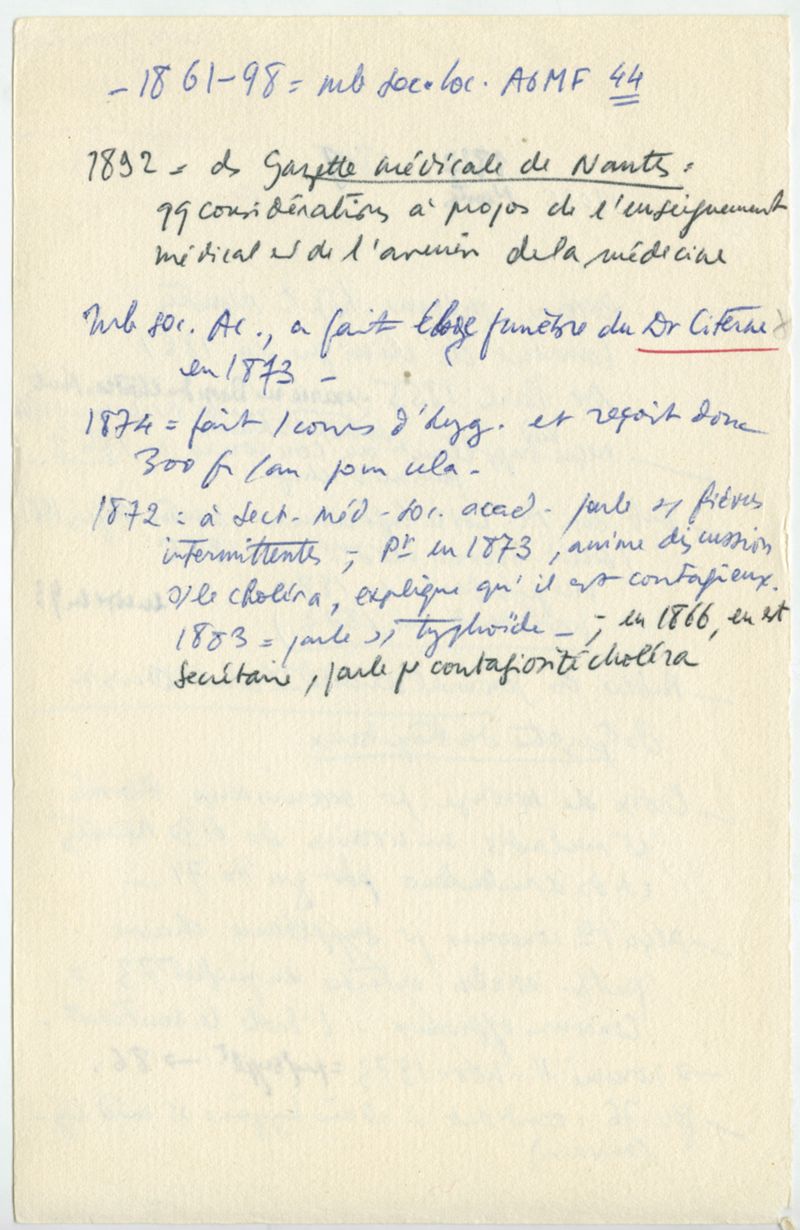 - 1861-98 = mb soc. loc. AGMF 44
1892 = ds Gazette médicale de Nantes =
qq considérations à propos de l'enseignement
médical et de l'avenir de la médecine
mb soc. Ac., a fait éloge funèbre du Dr Citerne
en 1873 -
1874 = fait 1 cours d'hyg. et reçoit donc
300 fr /an pour cela -
1872 = à sect. méd - soc. acad - parle s/ fièvres
intermittentes - ; Pt en 1873, anime discussion
s/ le choléra, explique qu'il est contagieux.
1883 = parle s/ typhoïde - ; en 1866, en est
secrétaire, parle contagiosité choléra